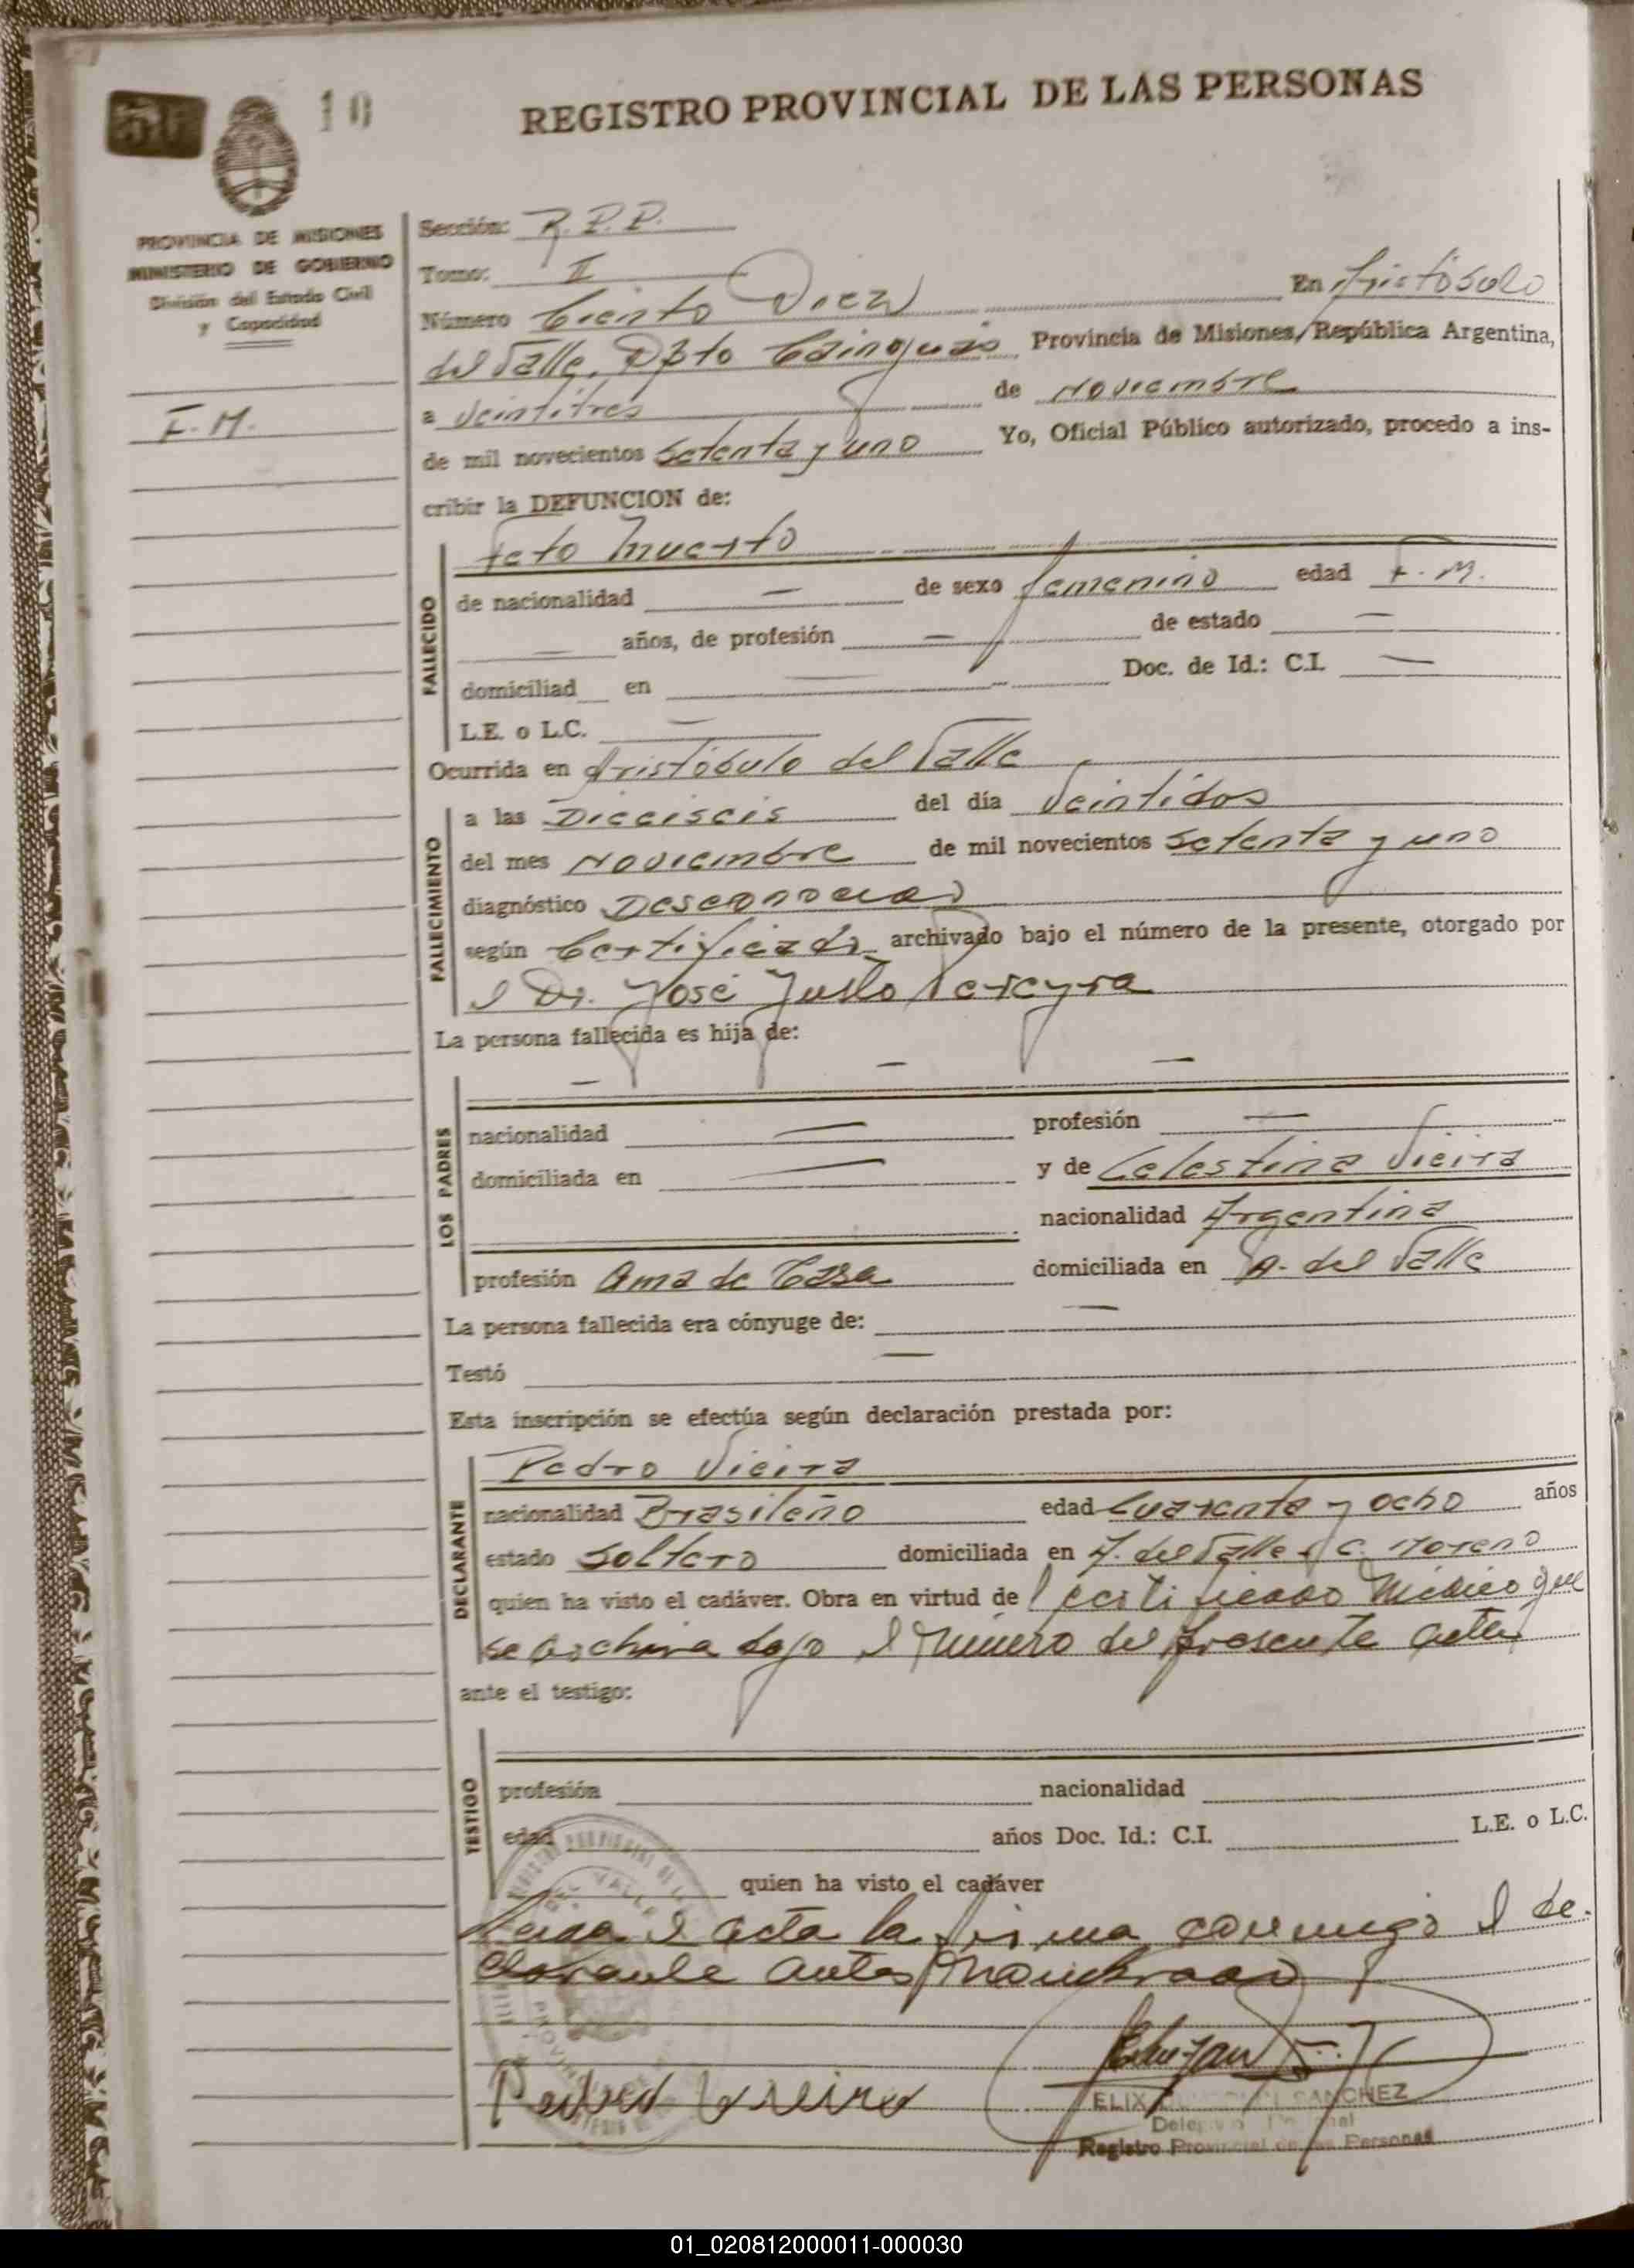 10
REGISTRO PROVINCIAL DE LAS PERSONAS
PROVINCIA DE MISIONES
MINISTERIO DE GOBIERNO
División del Estado Civil
y Capacidad
F.M.
Sección: R.P.P.
Tomo: II
Número Ciento Diez En Aristóbulo
del Valle, Dpto Cainguás Provincia de Misiones, República Argentina,
a veintitres de Noviembre
de mil novecientos setenta y uno Yo, Oficial Público autorizado, procedo a ins-
cribir la DEFUNCION de:
Feto Muerto
FALLECIDO
de nacionalidad — de sexo femenino edad F.M.
— años, de profesión — de estado —
domiciliad en — Doc. de Id.: C.I. —
L.E. o L.C. —
Ocurrida en Aristóbulo del Valle
FALLECIMIENTO
a las Dieciseis del día Veintidos
del mes Noviembre de mil novecientos setenta y uno
diagnóstico Desconocido
según Certificado archivado bajo el número de la presente, otorgado por
el Dr. José Justo Pereyra
La persona fallecida es hija de:
— — —
LOS PADRES
nacionalidad — profesión —
domiciliada en — y de Celestina Vieira
nacionalidad Argentina
profesión Ama de Casa domiciliada en A. del Valle
La persona fallecida era cónyuge de: —
Testó —
Esta inscripción se efectúa según declaración prestada por:
Pedro Vieira
DECLARANTE
nacionalidad Brasileño edad Cuarenta y ocho años
estado Soltero domiciliada en A. del Valle C. Moreno
quien ha visto el cadáver. Obra en virtud de Certificado Médico que
se archiva bajo el Número del presente acta
ante el testigo:
TESTIGO
profesión nacionalidad
edad años Doc. Id.: C.I. L.E. o L.C.
quien ha visto el cadáver
Leida el acta la firma conmigo el de-
clarante antes nombrado
Pedro Vieira
SANCHEZ
Registro Provincial de las Personas
01_020812000011-000030